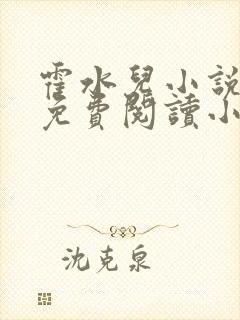 霍水兒小說
免費閱讀小
沈克泉